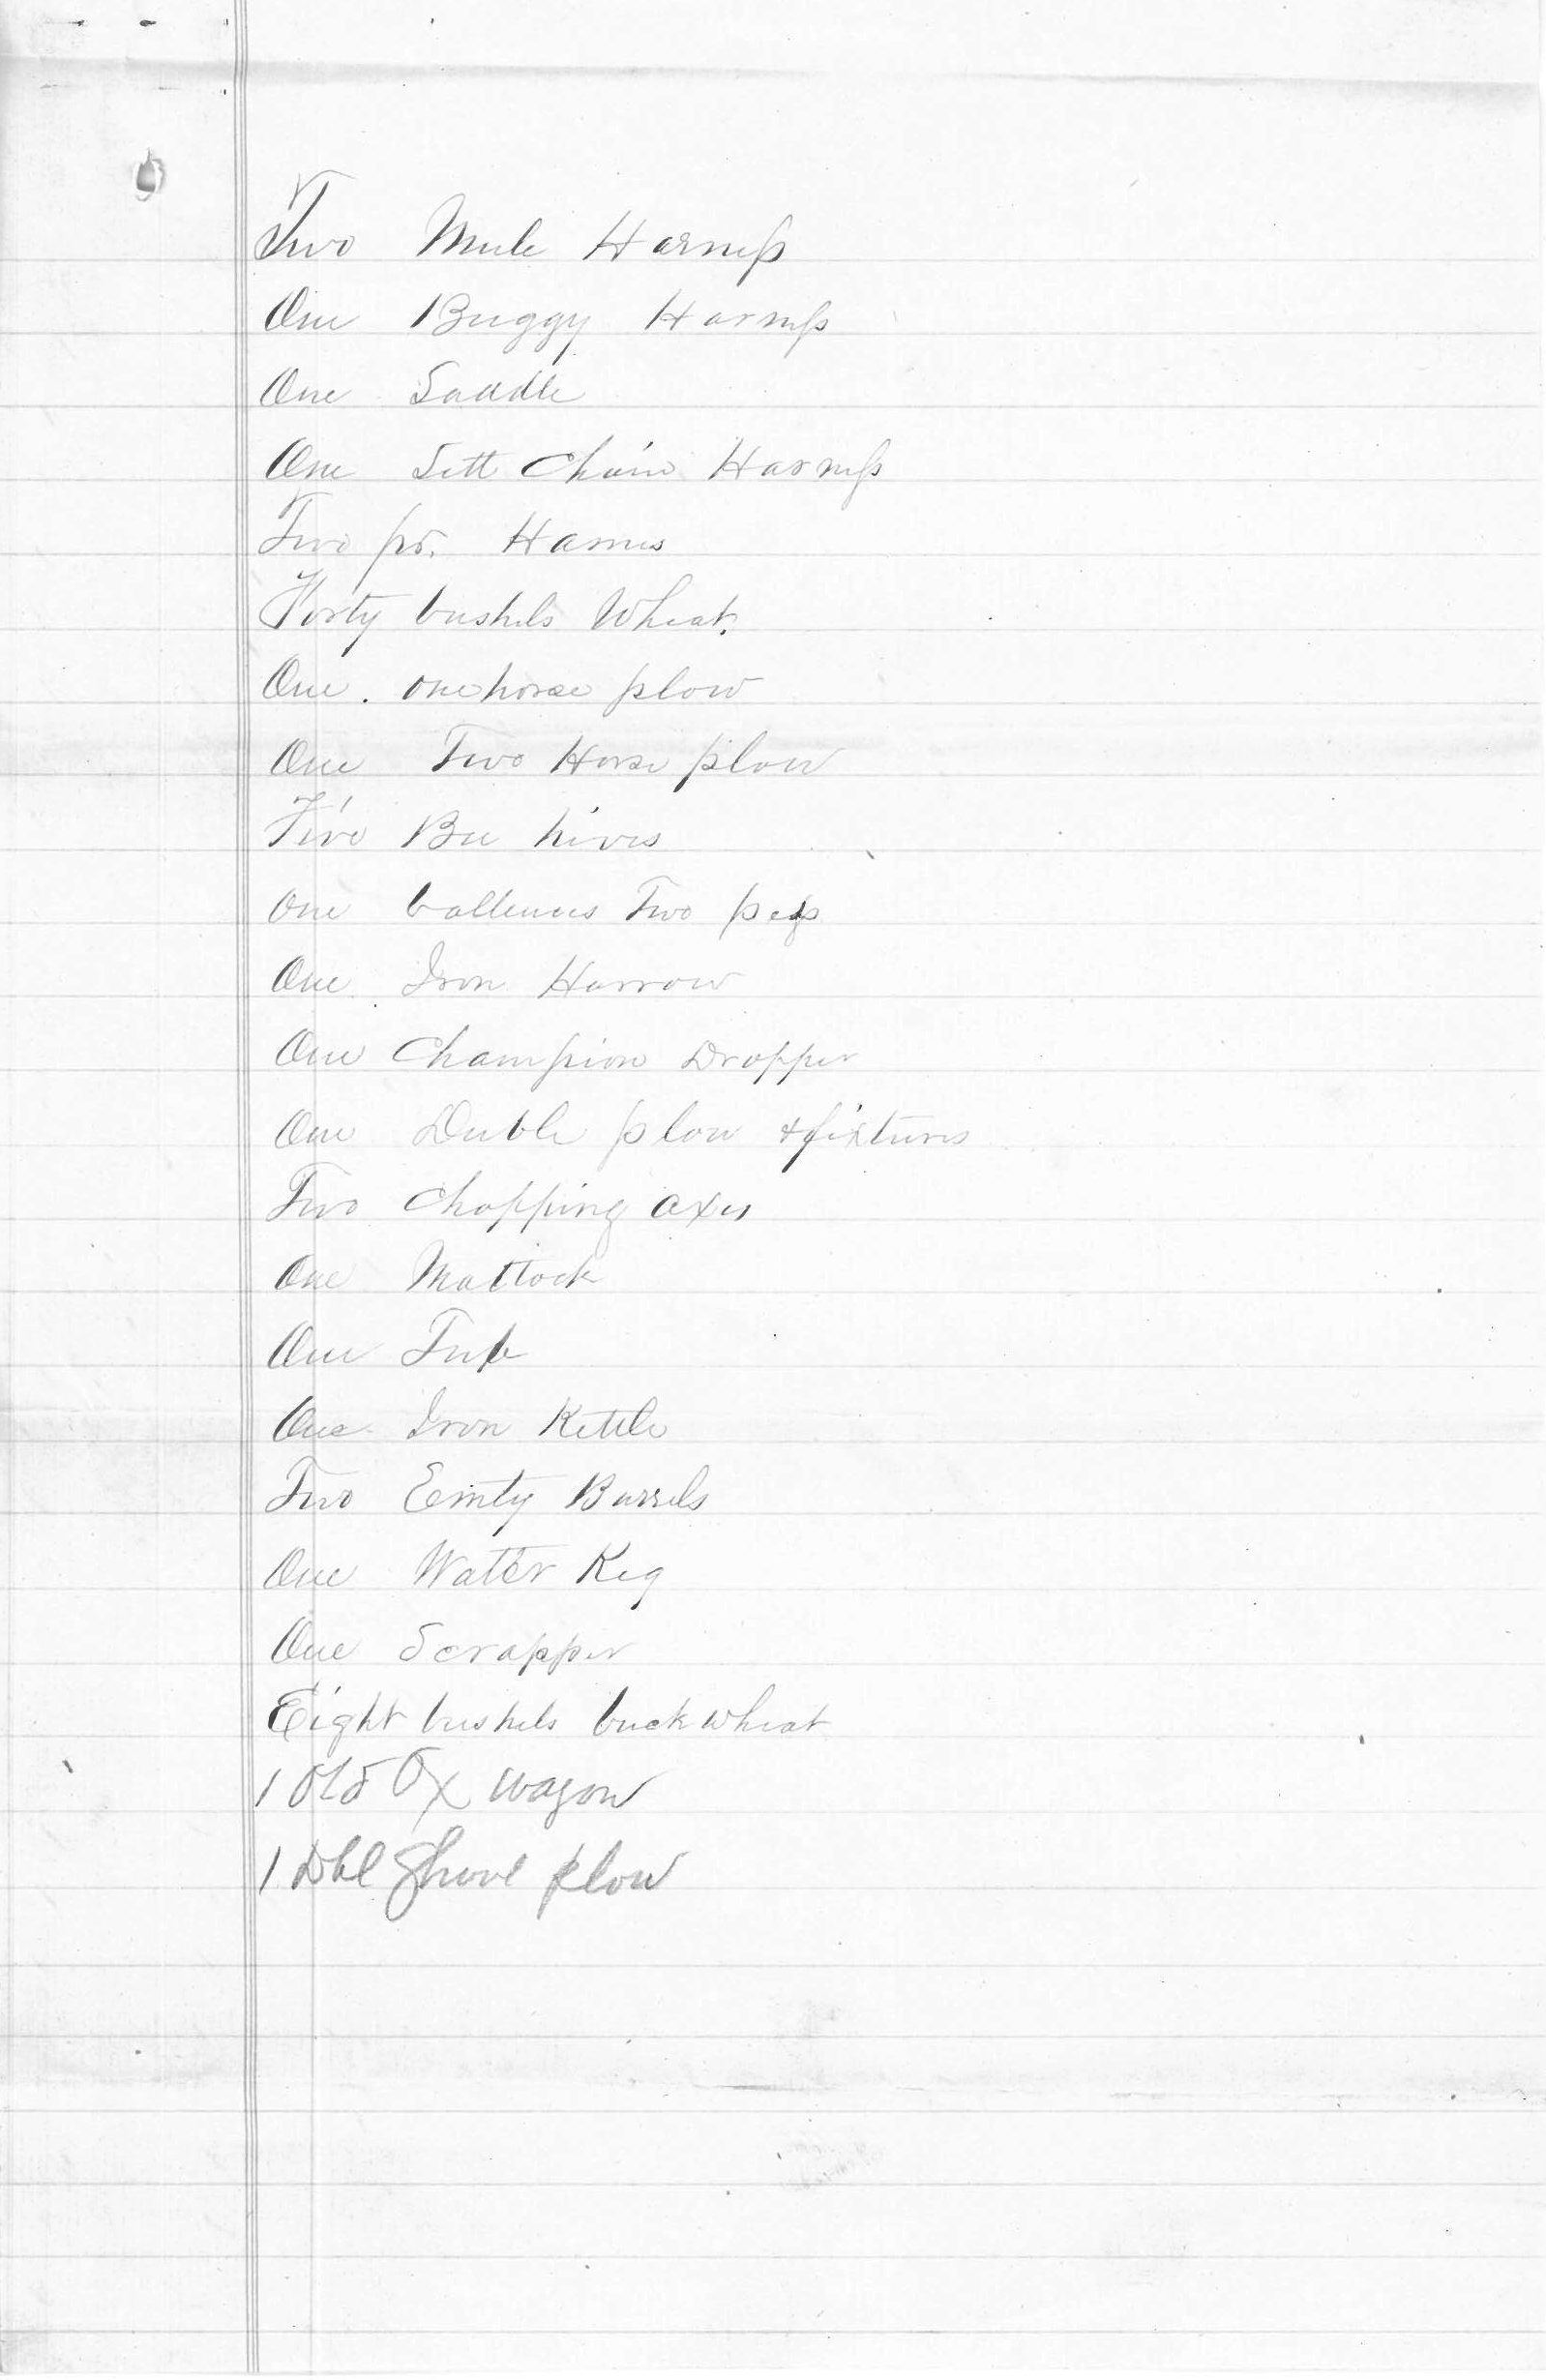 Two Mule Harness
One Buggy Harness
One Saddle
One Sett Chain Harness
Two pr. Hames
Forty bushels Wheat.
One . one horse plow
One Two Horse plow
Five Bee hives
One Two
One Iron Harrow
One Champion Dropper
One Duble plow & fixtures
Two Chopping axes
One Mattock
One Tub
One Iron Kettle
Two Emty Barrels
One Water Keg
One Scrapper
Eight bushels buckwheat
1 Old Ox wagon
1 Dbl Shovel plow